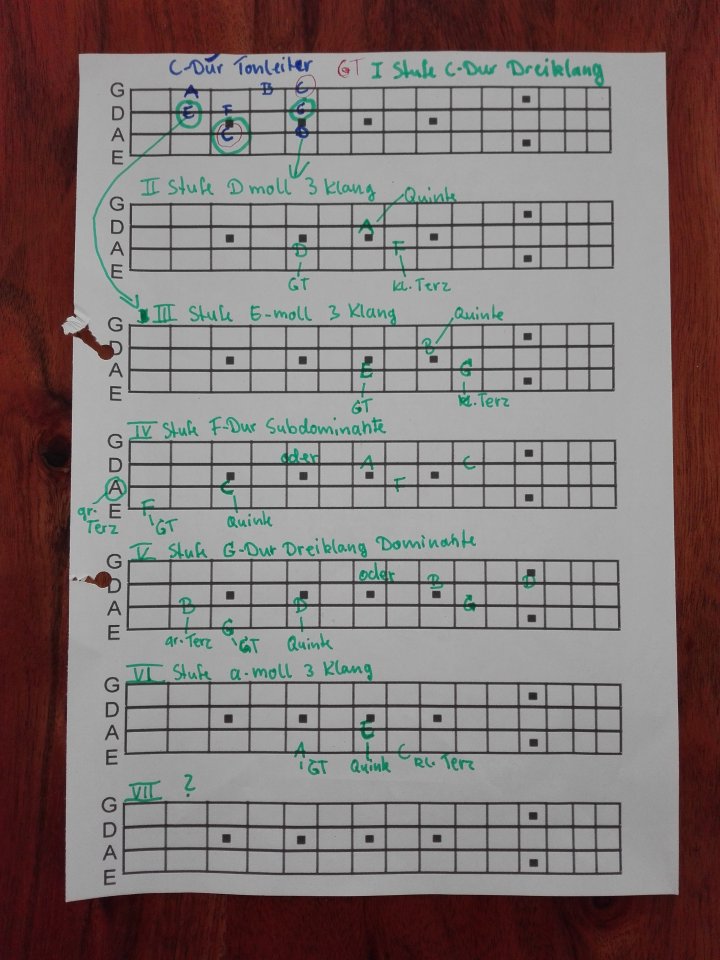 C-Dur Tonleiter GT I Stufe C-Dur Dreiklang
G A B C
D E F G
A C D
E
II Stufe D moll 3 Klang
Quinte
G
D A
A D F
E
GT kl. Terz
III Stufe E-moll 3 Klang
Quinte
G
D B
A E G
E
GT kl. Terz
IV Stufe F-Dur Subdominante
G
oder
D A C
A C F
E F
gr. Terz GT Quinte
V Stufe G-Dur Dreiklang Dominante
G
oder
D B D
A B D G
E G
gr. Terz GT Quinte
VI Stufe a-moll 3 Klang
G
D
A E
E A C
GT Quinte kl. Terz
VII ?
G
D
A
E